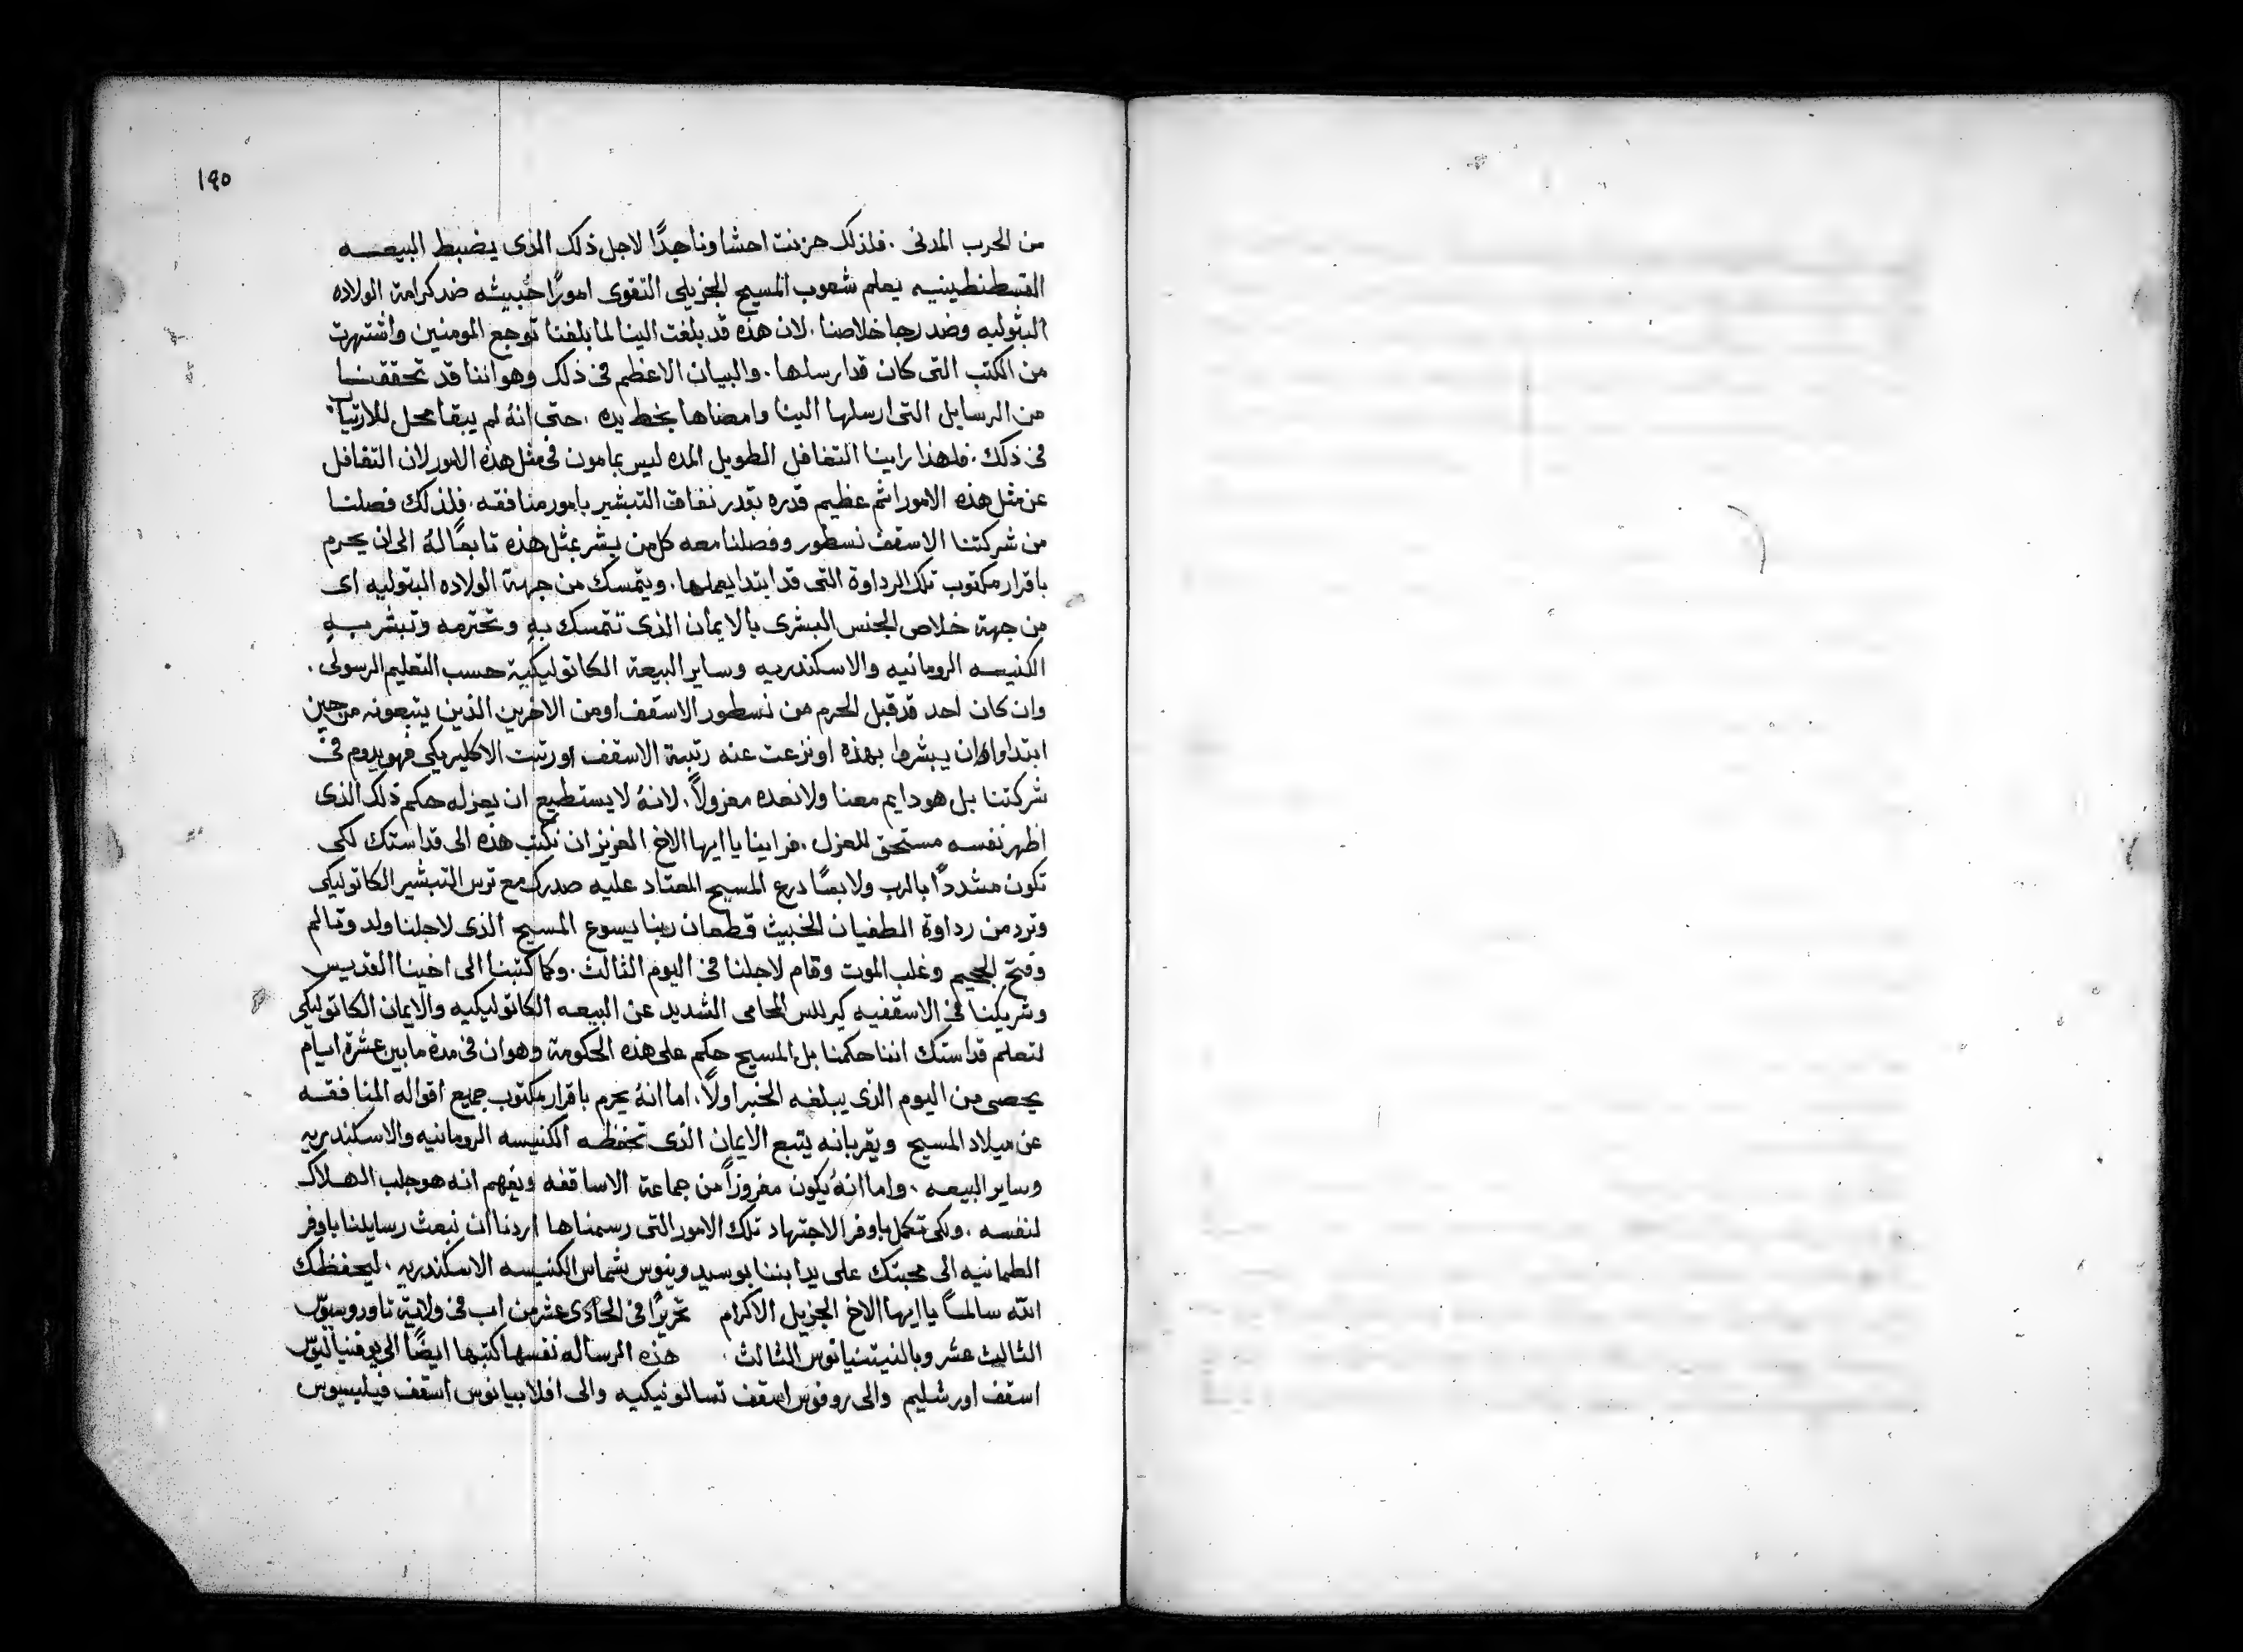 ١٩٥
من الحرب المدنى . فلذلك حزنت احشاونا جدًا لاجل ذلك الذى يضبط البيعـــه
القسطنطينيه يعلم شعوب المسيح الجزيلى التقوى امورًا خبيثه ضد كرامة الولاده
البتوليه وضد رجا خلاصنا . لان هذه قد بلغت الينا لما بلغنا توجع المومنين واشتهرت
من الكتب التى كان قد ارسلها . والبيان الاعظم فى ذلك وهو اننا قد تحققنــا
من الرسايل التى ارسلها الينا وامضاها بخط يده . حتى انهُ لم يبقا محل للارتياب
فى ذلك . فلهذا راينا التغافل الطويل المده ليس بمامون فى مثل هذه الامور لان التغافل
عن مثل هذه الامور اثم عظيم قدره بقدر نفاق التبشير بامور منافقه . فلذلك فصلنا
من شركتنا الاسقف نسطور وفصلنا معه كل من بشر بمثل هذه تابعًا لهُ الى ان يحرم
باقرار مكتوب تلك الرداوة التى قد ابتدا يعملها . ويتمسك من جهة الولاده البتوليه اى
من جهة خلاص الجنس البشرى بالايمان الذى تتمسك بهِ وتحترمه وتبشر بــهِ
الكنيسه الرومانيه والاسكندريه وساير البيعة الكاتوليكيه حسب التعليم الرسولى .
وان كان احد قد قبل الحرم من نسطور الاسقف او من الاخرين الذين يتبعونه من حين
ابتداوا ان يبشروا بهذه او نزعت عنه رتبة الاسقف او رتبت الاكليريكى فهو يدوم فى
شركتنا بل هو دايم معنا ولا نعده معزولاً . لانهُ لا يستطيع ان يعزله حكم ذلك الذى
اظهر نفسه مستحق للعزل . فراينا يا ايها الاخ العزيز ان نكتب هذه الى قداستك لكى
تكون مشددًا بالرب ولابسًا درع المسيح المعتاد عليه صدرك مع ترس التبشير الكاتوليكى
وترد من رداوة الطغيان الخبيث قطعان ربنا يسوع المسيح الذى لاجلنا ولد وتالم
وفتح الجحيم وغلب الموت وقام لاجلنا فى اليوم الثالث . وكما كتبنا الى اخينا القديس
وشريكنا فى الاسقفيه كيرللس المحامى الشديد عن البيعه الكاتوليكيه والايمان الكاتوليكى
لتعلم قداستك اننا حكمنا بل المسيح حكم على هذه الحكومة وهو ان فى مدة ما بين عشرة ايام
يحصى من اليوم الذى يبلغه الخبر اولاً . اما انهُ يحرم باقرار مكتوب جميع اقواله المنافقــه
عن ميلاد المسيح ويقر بانه يتبع الايمان الذى تحفظه الكنيسه الرومانيه والاسكندريه
وساير البيعه . واما انهُ يكون مفروزًا من جماعة الاساقفه ويفهم انه هو جلب الهـلاك
لنفسه . ولكى تكمل باوفر الاجتهاد تلك الامور التى رسمناها اردنا ان نبعث رسايلنا باوفر
الطمانيه الى محبتك على يد ابننا بوسيدونيوس شماس الكنيسه الاسكندريه . ليحفظك
الله سالمــًا يا ايها الاخ الجزيل الاكرام تحريرًا فى الحادى عشر من اب فى ولاية تاوروسيوس
الثالث عشر وبالنيتنيانوس الثالث . هذه الرساله نفسها كتبها ايضًا الى يوفنياليوس
اسقف اورشليم والى روفوس اسقف تسالونيكيه والى افلابيانوس اسقف فيليسيوس